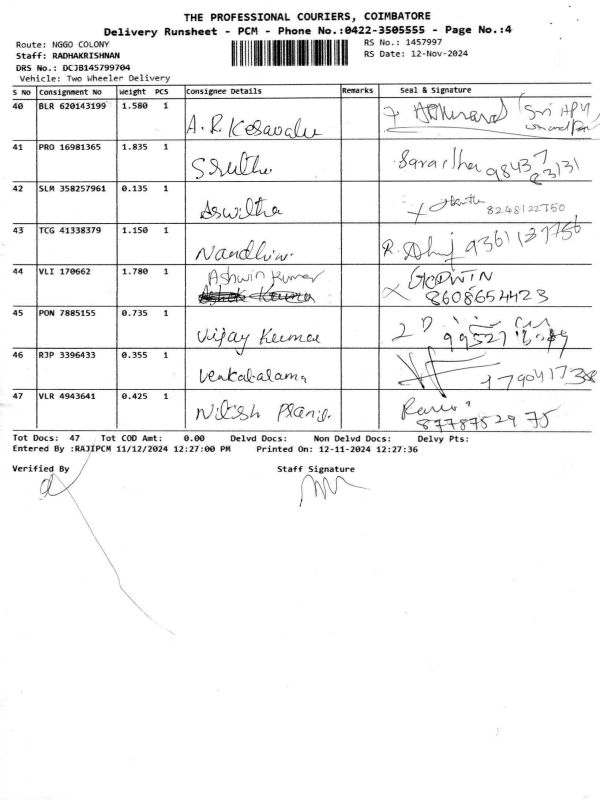 THE PROFESSIONAL COURIERS, COIMBATORE
Delivery Runsheet - PCM - Phone No.:0422-3505555 - Page No.:4
Route: NGGO COLONY
RS No.: 1457997
Staff: RADHAKRISHNAN
RS Date: 12-Nov-2024
DRS No.: DCJB145799704
Vehicle: Two Wheeler Delivery
S No Consignment No Weight PCS Consignee Details Remarks Seal & Signature
40 BLR 620143199 1.580 1 A.R. Kesavalu
41 PRO 16981365 1.835 1 Sruthi 98437 83131
42 SLM 358257961 0.135 1 Aswitha 8248122750
43 TCG 41338379 1.150 1 R.
44 VLI 170662 1.780 1 Ashwin Kumar GODWIN 8608654423
45 PON 7885155 0.735 1 Vijay Kumar
46 RJP 3396433 0.355 1
47 VLR 4943641 0.425 1 Nitish 87787529 75
Tot Docs: 47 Tot COD Amt: 0.00 Delvd Docs: Non Delvd Docs: Delvy Pts:
Entered By :RAJIPCM 11/12/2024 12:27:00 PM Printed On: 12-11-2024 12:27:36
Verified By Staff Signature